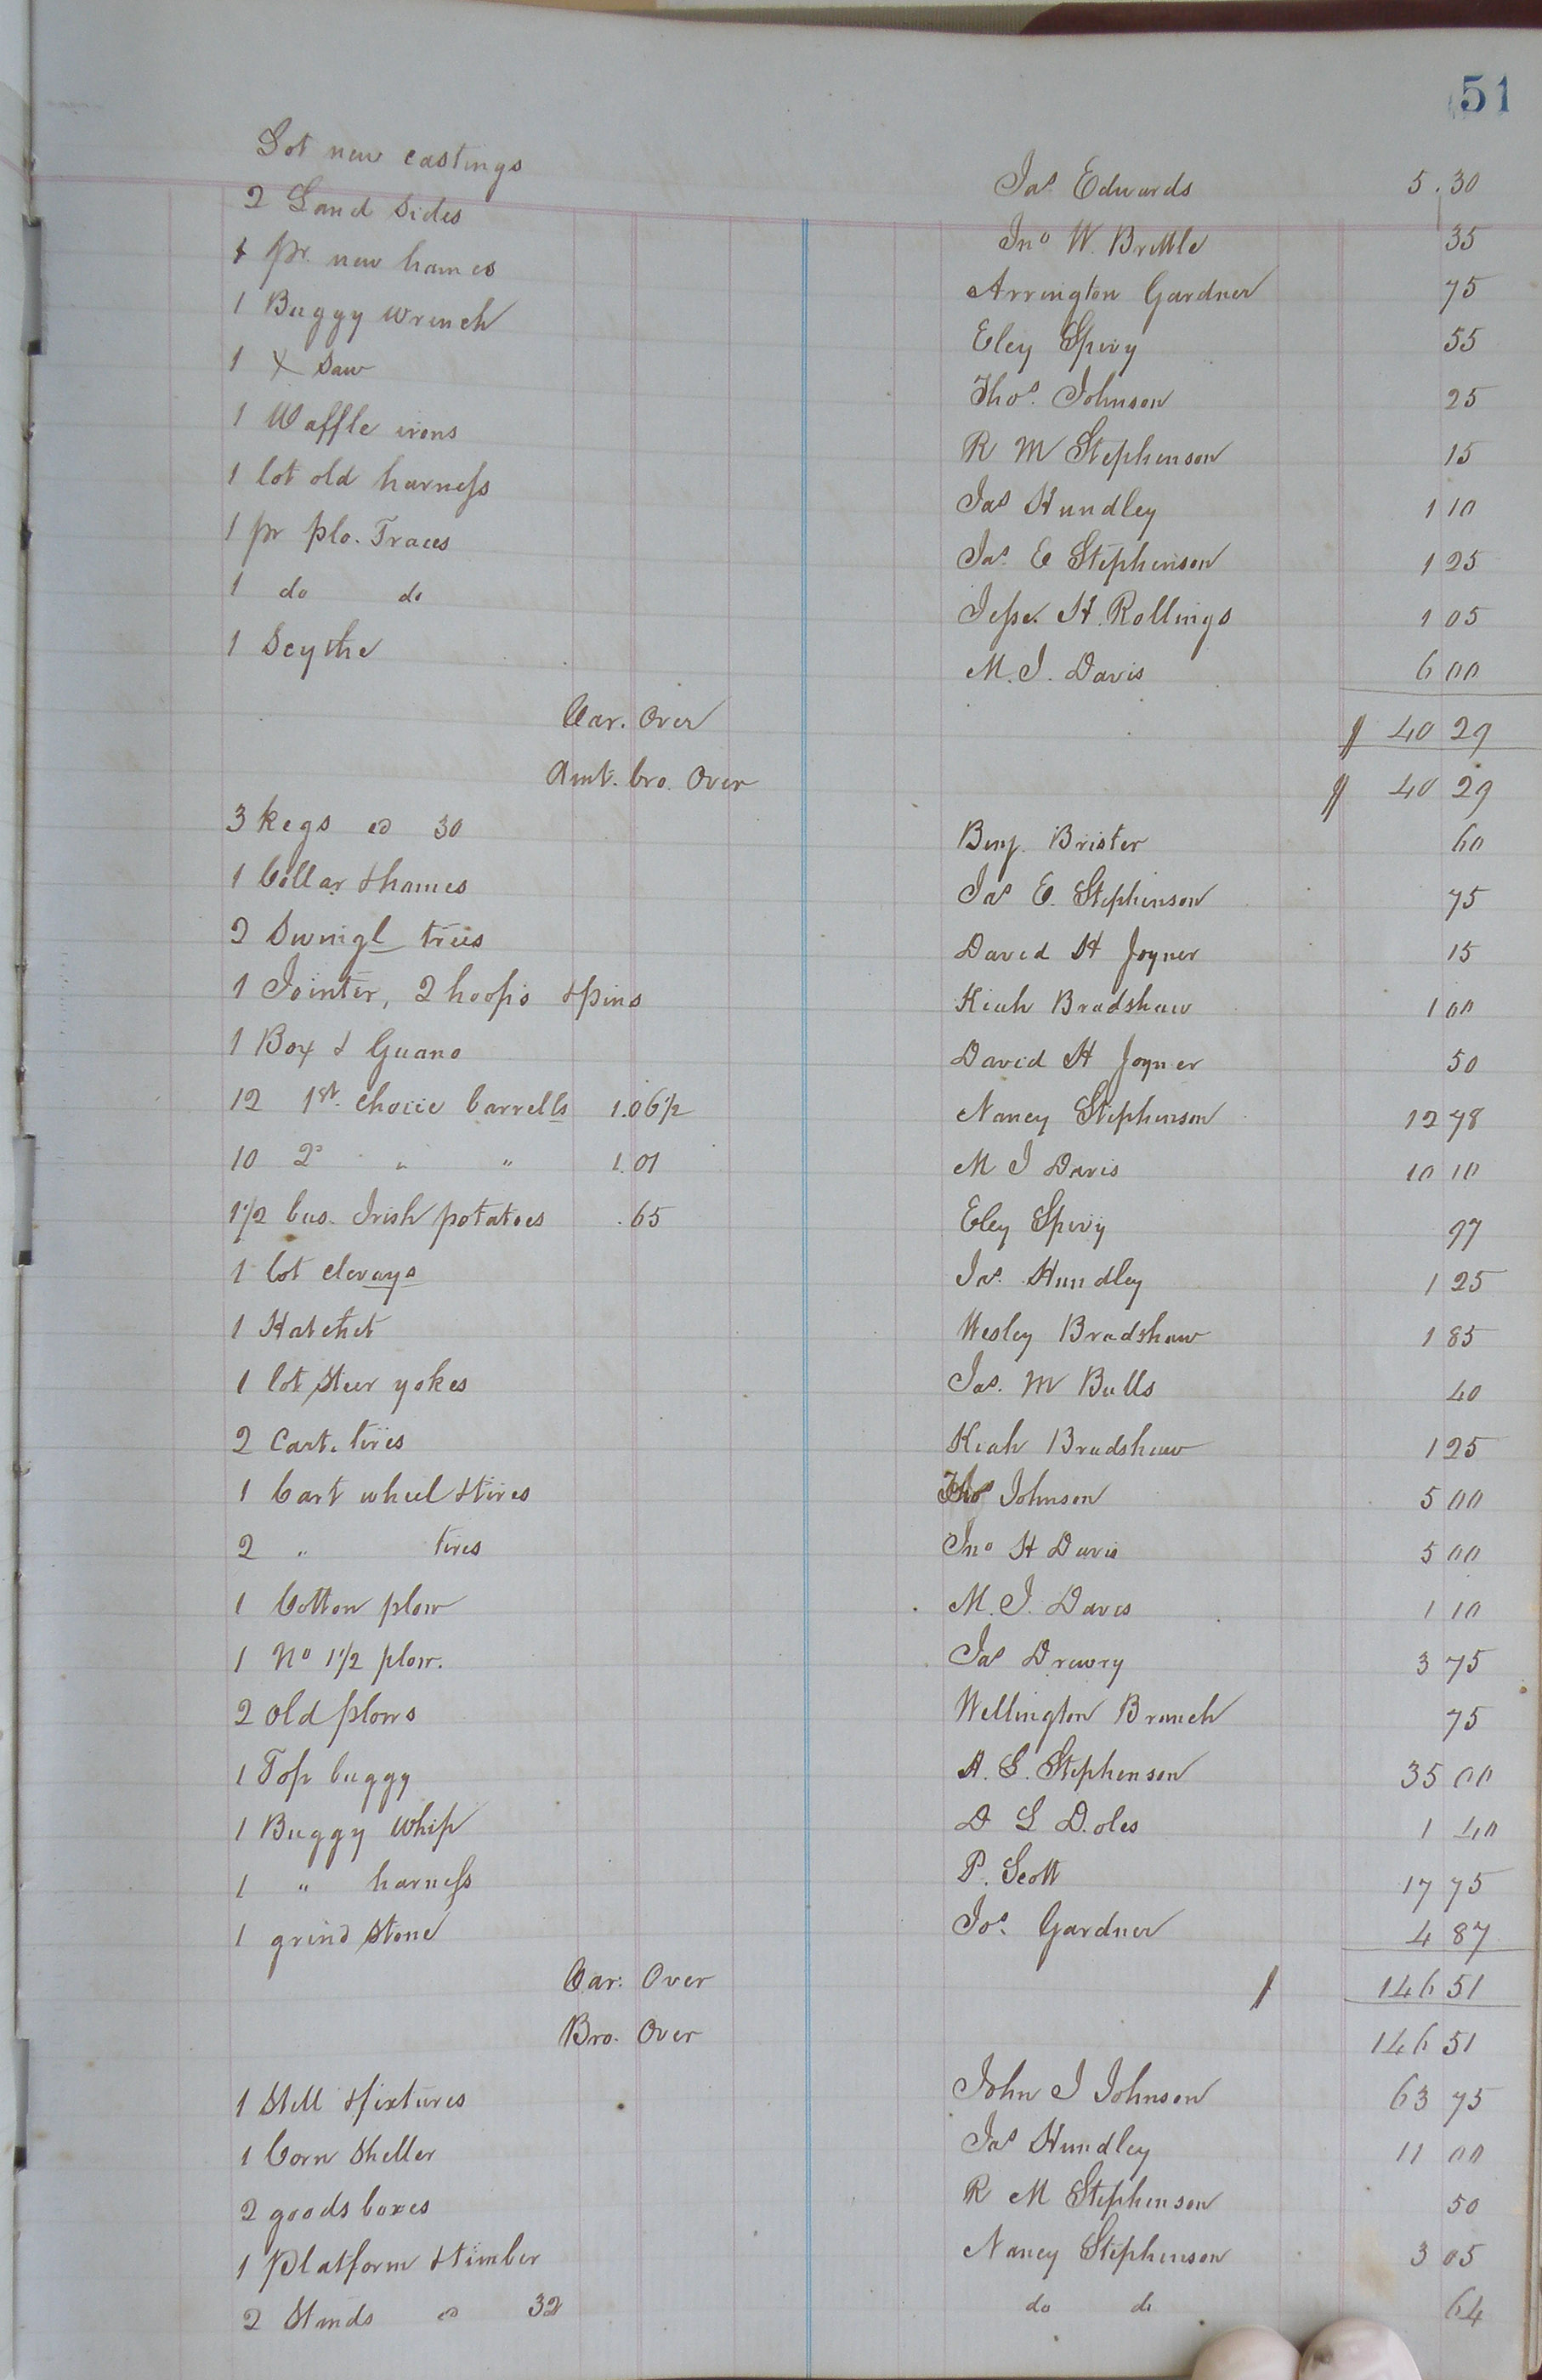 51
Lot new castings Jas Edwards 5.30
2 Land Sides Jno W. Brittle 35
1 pr. new hames Arrington Gardner 75
1 Buggy wrench Eley Spivy 55
1 X Saw Thos. Johnson 25
1 Waffle irons R M Stephenson 15
1 lot old harness Jas Hundley 1 10
1 pr plo. Traces Jas. E Stephenson 1 25
1 do do Jesse. H. Rollings 1 05
1 Scythe M. J. Davis 6 00
Car. Over $ 40 29
Amt. bro. Over $ 40 29
3 kegs @ 30 Benj. Brister 60
1 Collar & hames Jas E. Stephenson 75
2 Swingl trees David H Joyner 15
1 Jointer, 2 hoops & pins Kiah Bradshaw 1 00
1 Box & Guano David H Joyner 50
12 1st. choice barrells 1.06 1/2 Nancy Stephenson 12 78
10 2d " " 1.01 M J Davis 10 10
1 1/2 bus. Irish potatoes .65 Eley Spivy 97
1 lot clevays Jas. Hundley 1 25
1 Hatchet Wesley Bradshaw 1 85
1 lot Steer yokes Jas. M Bulls 40
2 Cart. tires Kiah Bradshaw 1 25
1 Cart wheel & tires Thos Johnson 5 00
2 " tires Jno H Davis 5 00
1 Cotton plow M. J. Davis 1 10
1 No 1 1/2 plow. Jas Drewry 3 75
2 old plows Wellington Branch 75
1 Top buggy A. S. Stephenson 35 00
1 Buggy Whip D L Doles 1 40
1 " harness P. Scott 17 75
1 grind Stone Jos. Gardner 4 87
Car. Over $ 146 51
Bro. Over 146 51
1 Still & fixtures John J Johnson 63 75
1 Corn Sheller Jas Hundley 11 00
2 goods boxes R M Stephenson 50
1 Platform & timber Nancy Stephenson 3 05
2 Stands @ 32 do do 64